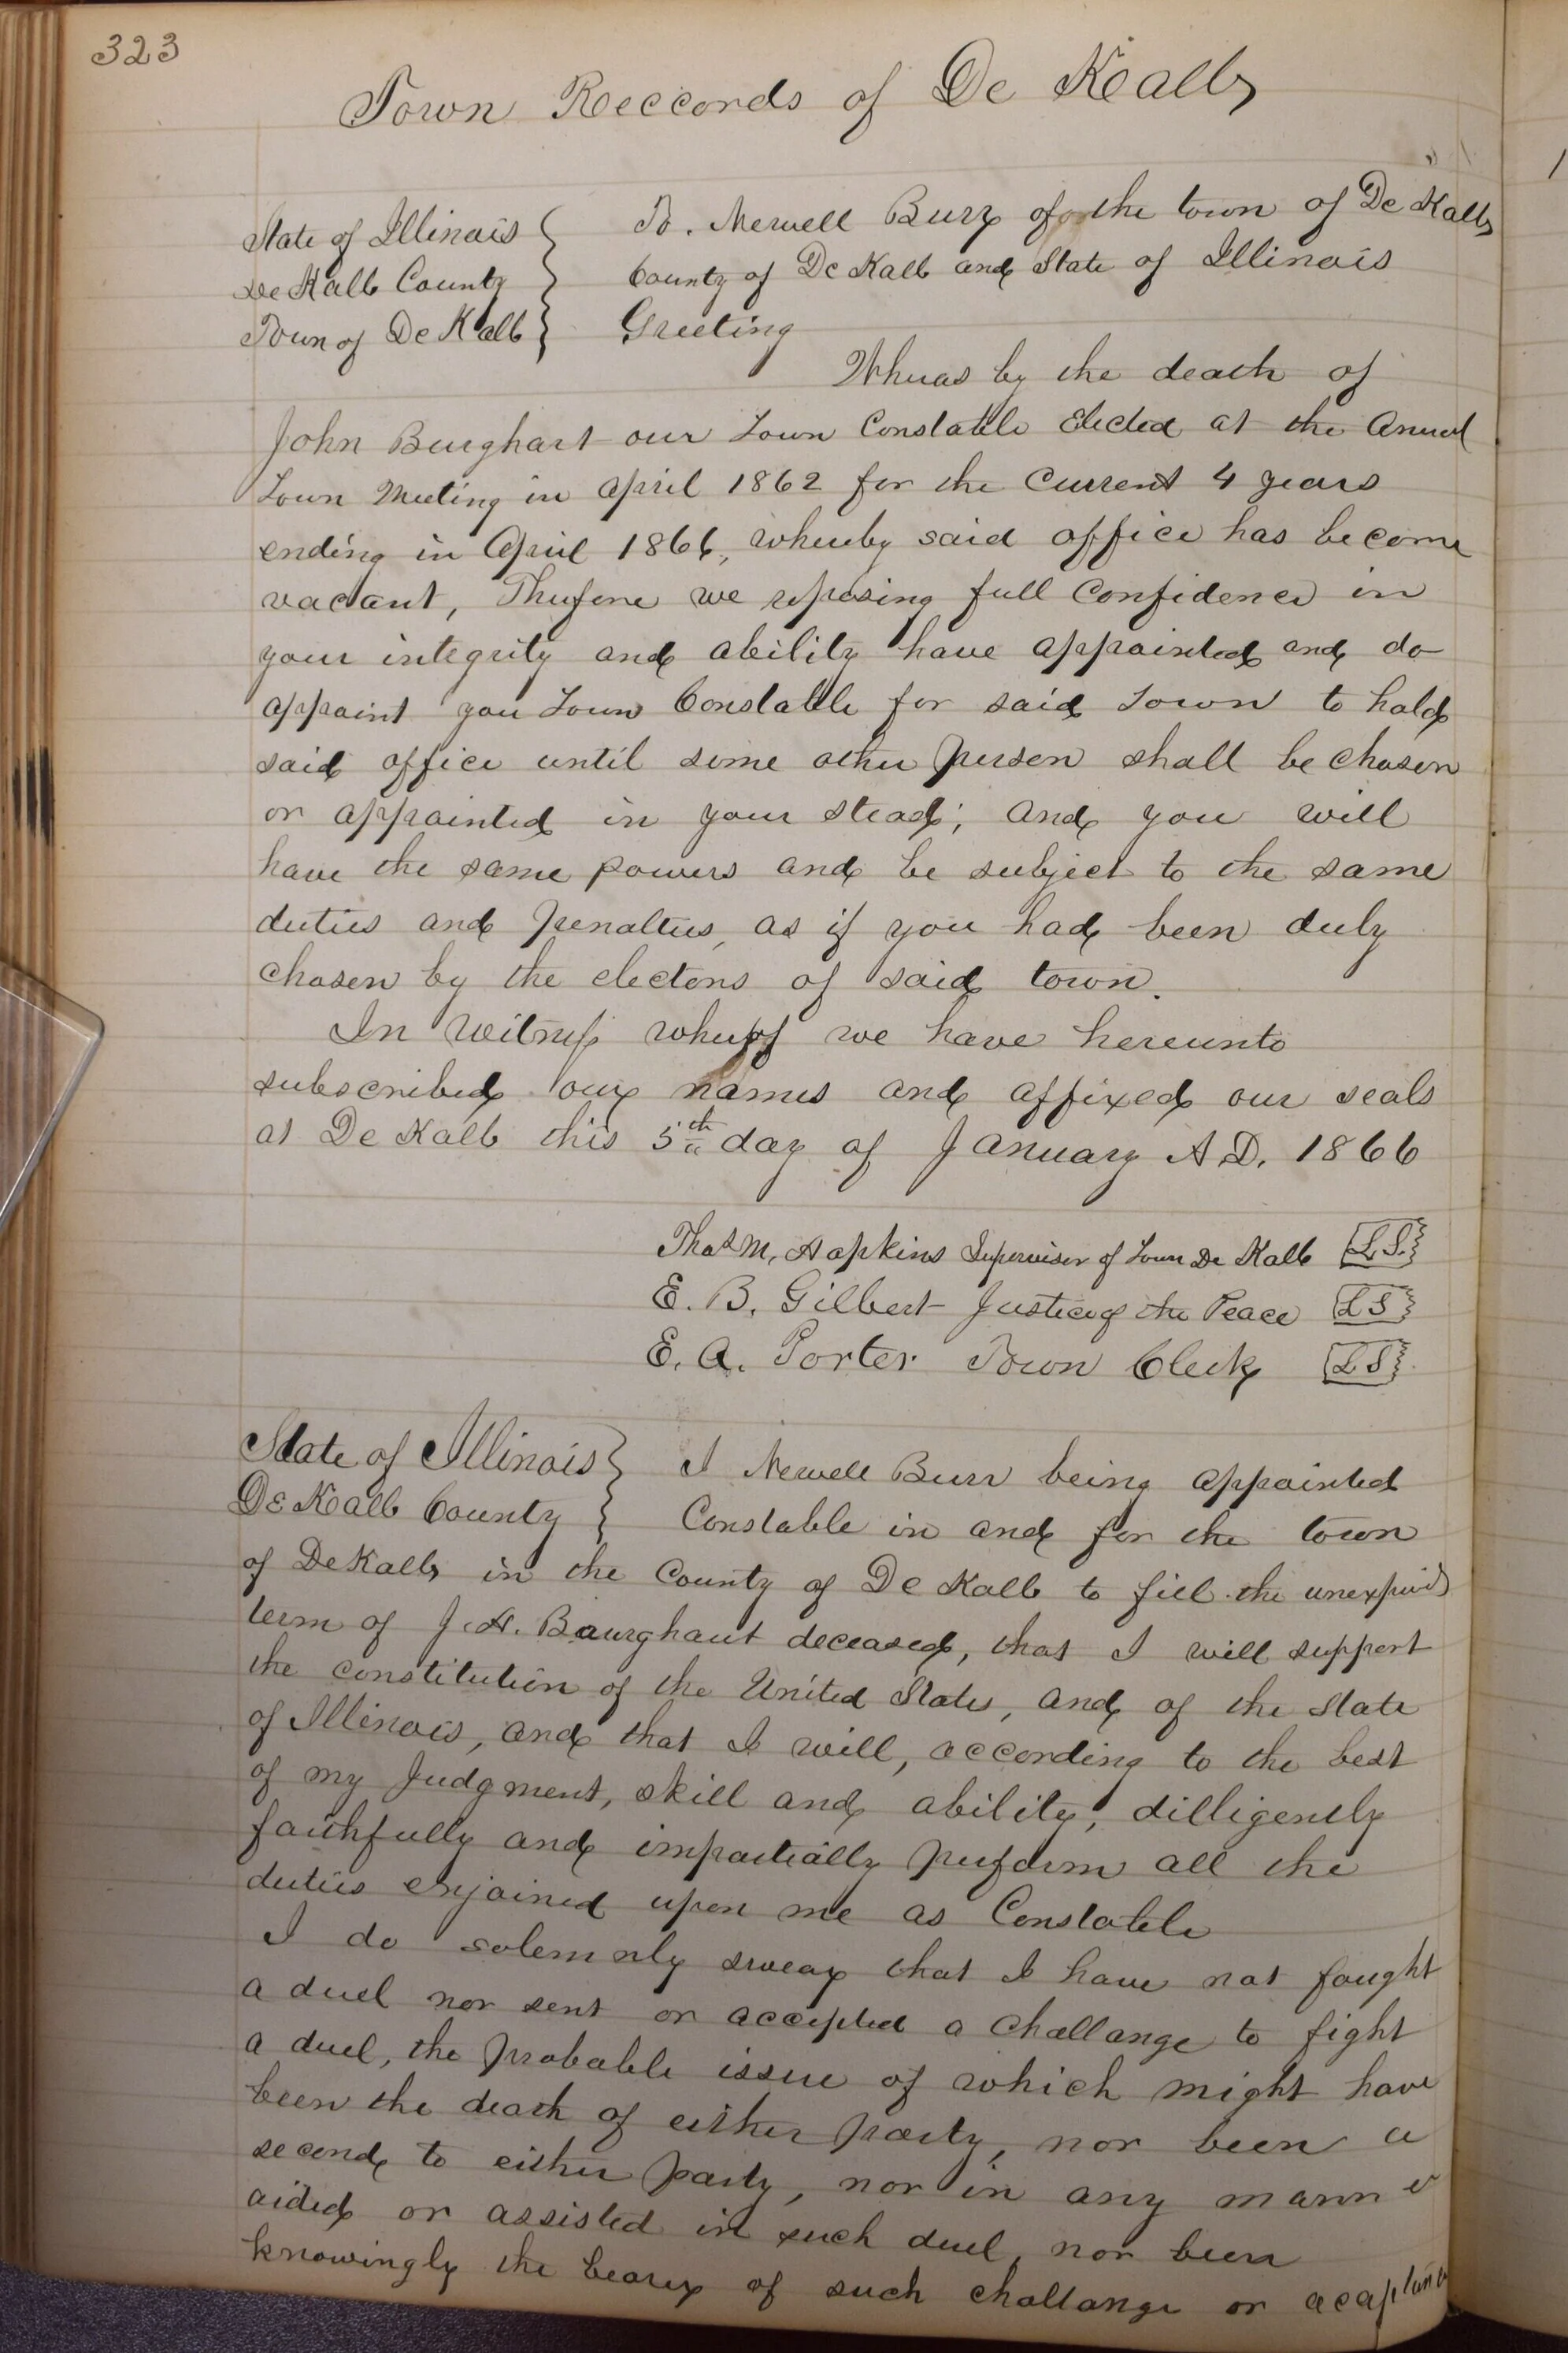 323
Town Reccords of De Kalb
State of Illinois } To. Newell Burr of the town of De Kalb
De Kalb County } County of De Kalb and State of Illinois
Town of De Kalb } Greeting
Whereas by the death of
John Burghart our Town Constable Elected at the Annual
Town Meeting in April 1862 for the Current 4 years
ending in April 1866, whereby said office has become
vacant, Therefore we reposing full Confidence in
your integrity and ability have appointed and do
appoint you Town Constable for said Town to hold
said office until some other person shall be chosen
or appointed in your stead; and you will
have the same powers and be subject to the same
duties and penalties, as if you had been duly
chosen by the electors of said town.
In Witness whereof we have hereunto
subscribed our names and affixed our seals
at De Kalb this 5th day of January A.D. 1866
Thos M. Hopkins Supervisor of Town De Kalb [L.S.]
E. B. Gilbert Justice of the Peace [L S]
E. A. Porter Town Clerk [L S]
State of Illinois } I Newell Burr being appointed
De Kalb County } Constable in and for the town
of De Kalb in the County of De Kalb to fill the unexpired
term of J. H. Baurghart deceased, that I will support
the constitution of the United States, and of the State
of Illinois, and that I will, according to the best
of my Judgment, skill and ability, dilligently
faithfully and impartially perform all the
duties enjoined upon me as Constable
I do solemnly swear that I have not fought
a duel nor sent or accepted a challange to fight
a duel, the probable issue of which might have
been the death of either party, nor been a
second to either party, nor in any manner
aided or assisted in such duel, nor been
knowingly the bearer of such challange or acaptance